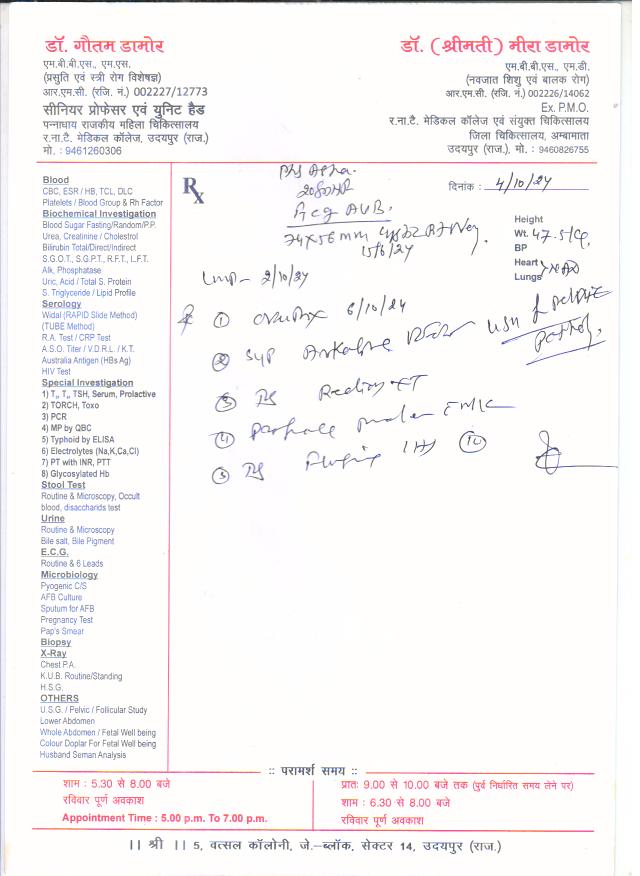 डॉ. गौतम डामोर
एम.बी.बी.एस., एम.एस.
(प्रसुति एवं स्त्री रोग विशेषज्ञ)
आर.एम.सी. (रजि. नं.) 002227/12773
सीनियर प्रोफेसर एवं युनिट हैड
पन्नाधाय राजकीय महिला चिकित्सालय
र.ना.टै. मेडिकल कॉलेज, उदयपुर (राज.)
मो. : 9461260306
डॉ. (श्रीमती) मीरा डामोर
एम.बी.बी.एस., एम.डी.
(नवजात शिशु एवं बालक रोग)
आर.एम.सी. (रजि. नं.) 002226/14062
Ex. P.M.O.
र.ना.टै. मेडिकल कॉलेज एवं संयुक्त चिकित्सालय
जिला चिकित्सालय, अम्बामाता
उदयपुर (राज.), मो. : 9460826755
Blood
CBC, ESR / HB, TCL, DLC
Platelets / Blood Group & Rh Factor
Biochemical Investigation
Blood Sugar Fasting/Random/P.P.
Urea, Creatinine / Cholestrol
Bilirubin Total/Direct/Indirect
S.G.O.T., S.G.P.T., R.F.T., L.F.T.
Alk, Phosphatase
Uric, Acid / Total S. Protein
S. Triglyceride / Lipid Profile
Serology
Widal (RAPID Slide Method)
(TUBE Method)
R.A. Test / CRP Test
A.S.O. Titer / V.D.R.L. / K.T.
Australia Antigen (HBs Ag)
HIV Test
Special Investigation
1) T₃, T₄, TSH, Serum, Prolactive
2) TORCH, Toxo
3) PCR
4) MP by QBC
5) Typhoid by ELISA
6) Electrolytes (Na,K,Ca,Cl)
7) PT with INR, PTT
8) Glycosylated Hb
Stool Test
Routine & Microscopy, Occult
blood, disaccharids test
Urine
Routine & Microscopy
Bile salt, Bile Pigment
E.C.G.
Routine & 6 Leads
Microbiology
Pyogenic C/S
AFB Culture
Sputum for AFB
Pregnancy Test
Pap's Smear
Biopsy
X-Ray
Chest P.A.
K.U.B. Routine/Standing
H.S.G.
OTHERS
U.S.G. / Pelvic / Follicular Study
Lower Abdomen
Whole Abdomen / Fetal Well being
Colour Doplar For Fetal Well being
Husband Seman Analysis
Rx
दिनांक : 4/10/24
Height
Wt. 47.5/Kg
BP
Heart
Lungs
AUB.
74x56 mm
15/6/24
LMP - 2/10/24
① 6/10/24
② Syp
③
④
⑤ ⑩
:: परामर्श समय ::
शाम : 5.30 से 8.00 बजे
रविवार पूर्ण अवकाश
Appointment Time : 5.00 p.m. To 7.00 p.m.
प्रातः 9.00 से 10.00 बजे तक (पुर्व निर्धारित समय लेने पर)
शाम : 6.30 से 8.00 बजे
रविवार पूर्ण अवकाश
।। श्री ।। 5, वत्सल कॉलोनी, जे.–ब्लॉक, सेक्टर 14, उदयपुर (राज.)